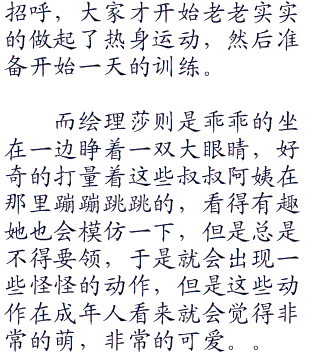 招呼，大家才开始老老实实
的做起了热身运动，然后准
备开始一天的训练。
而绘理莎则是乖乖的坐
在一边睁着一双大眼睛，好
奇的打量着这些叔叔阿姨在
那里蹦蹦跳跳的，看得有趣
她也会模仿一下，但是总是
不得要领，于是就会出现一
些怪怪的动作，但是这些动
作在成年人看来就会觉得非
常的萌，非常的可爱。。